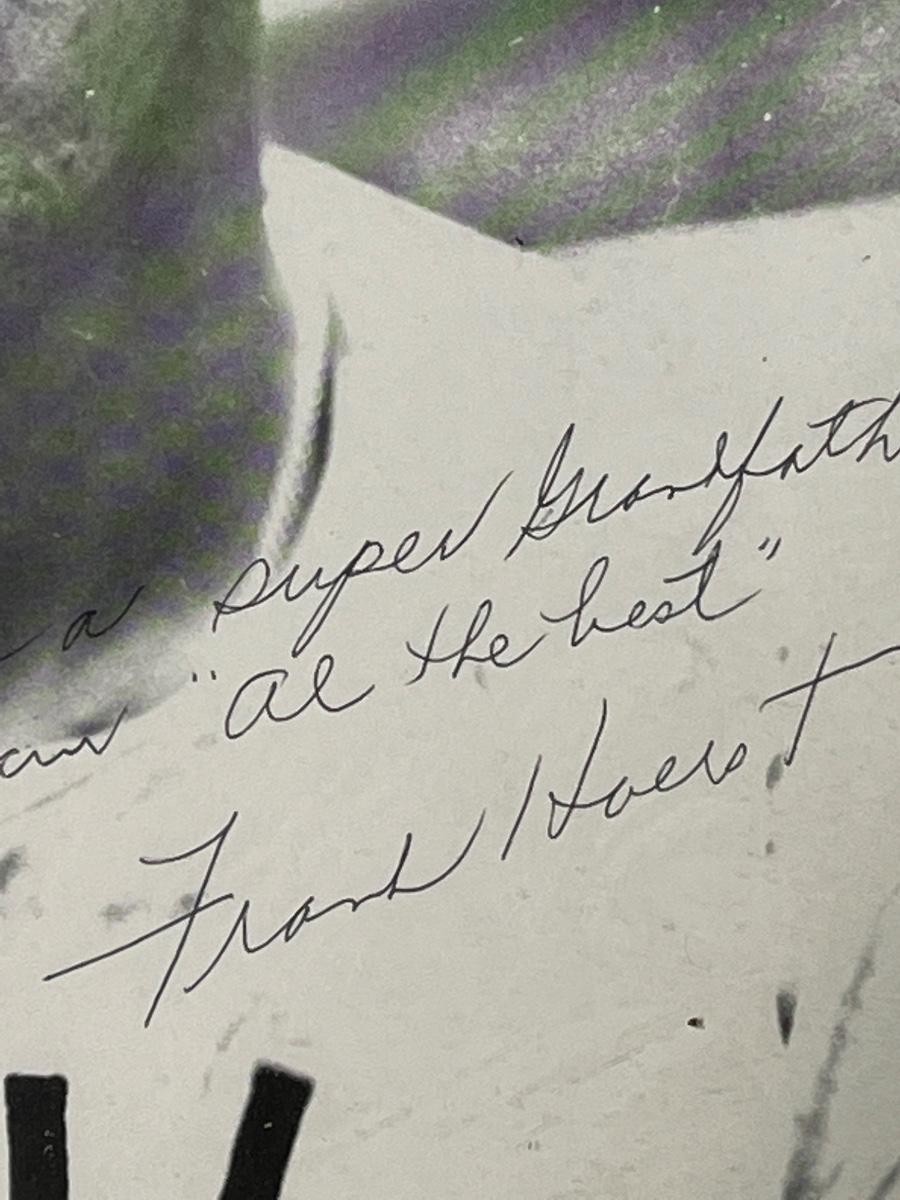 a super Grandfath
"Al the best"
Frank Hoerst